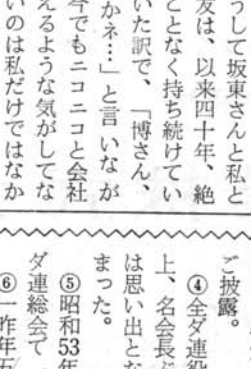 うして坂東さんと私と
友は、以来四十年、絶
ことなく持ち続けてい
いた訳で、「博さん、
かネ…」と言いなが
今でもニコニコと会社
えるような気がしてな
いのは私だけではなか
ご披露。
④全ダ連役
上、名会長ぶ
は思い出とな
まった。
⑤昭和53年
ダ連総会で
⑥一昨年五